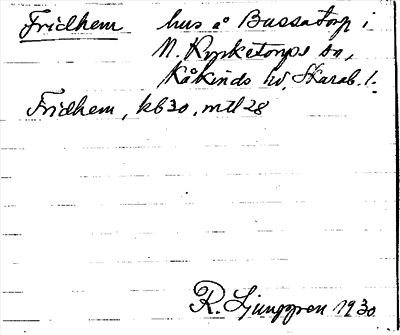 Fridhem hus å Bussatorp i
N. Kyrketorps sn,
Kåkinds hd, Skarab. l.
Fridhem, kb30, mtl28
R. Ljunggren 1930